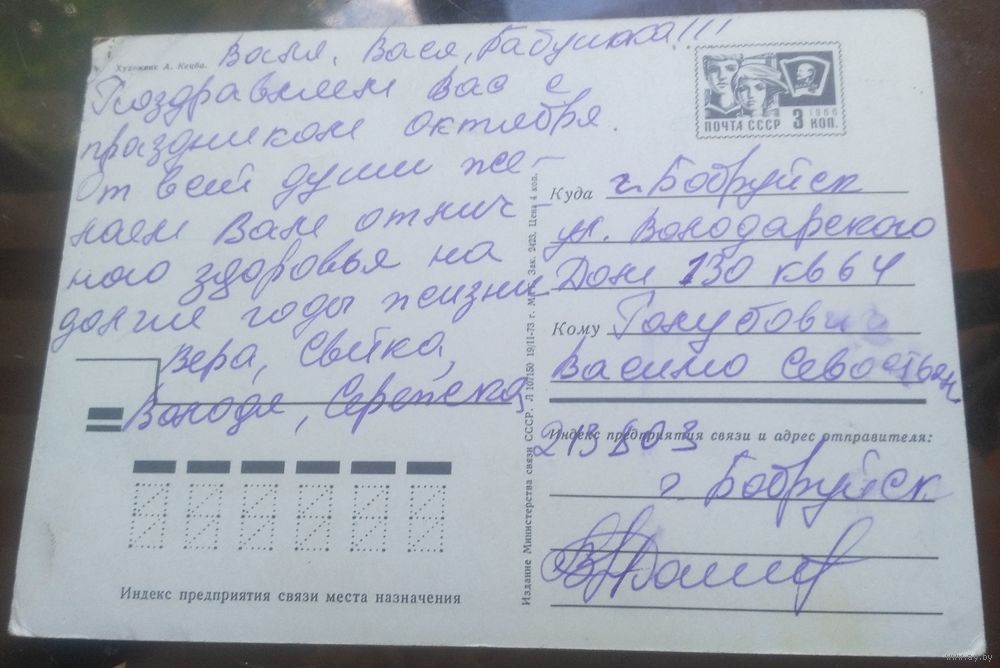 Художник А. Кецба.
Валя, Вася, Бабушка!!!
Поздравляем Вас с
праздником октября.
От всей души же-
лаем Вам отлич-
ного здоровья на
долгие годы жизни
Вера, Светка,
Володя, Сережка
Индекс предприятия связи места назначения
Издание Министерства связи СССР. Л 107150 19/II-73 г. Зак. 2423. Цена 4 коп.
1966
ПОЧТА СССР 3 КОП.
Куда г. Бобруйск
ул. Володарского
Дом 130 кв 64
Кому Голубович
Василию Севостьян
Индекс предприятия связи и адрес отправителя:
213803
г. Бобруйск
www.ay.by